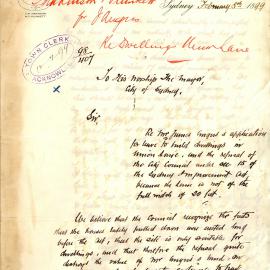 Sydney February 8th 1899
for J Rogers
Re Dwellings Union Lane
TOWN CLERK
ACKNOWL
98/1107
To His Worship The Mayor,
City of Sydney,
Sir,
Re Mr James application
for leave to build dwellings in
Union Lane, and the refusal of
the City Council under cl 15 of
the Sydney Improvement Act,
because the lane is not of the
full width of 20 feet.
We believe that the Council recognize the facts
that the houses lately pulled down was erected long
before the Act, that the site is only available for
dwellings, and that therefore the refusal quite
destroys the value of Mr land, an